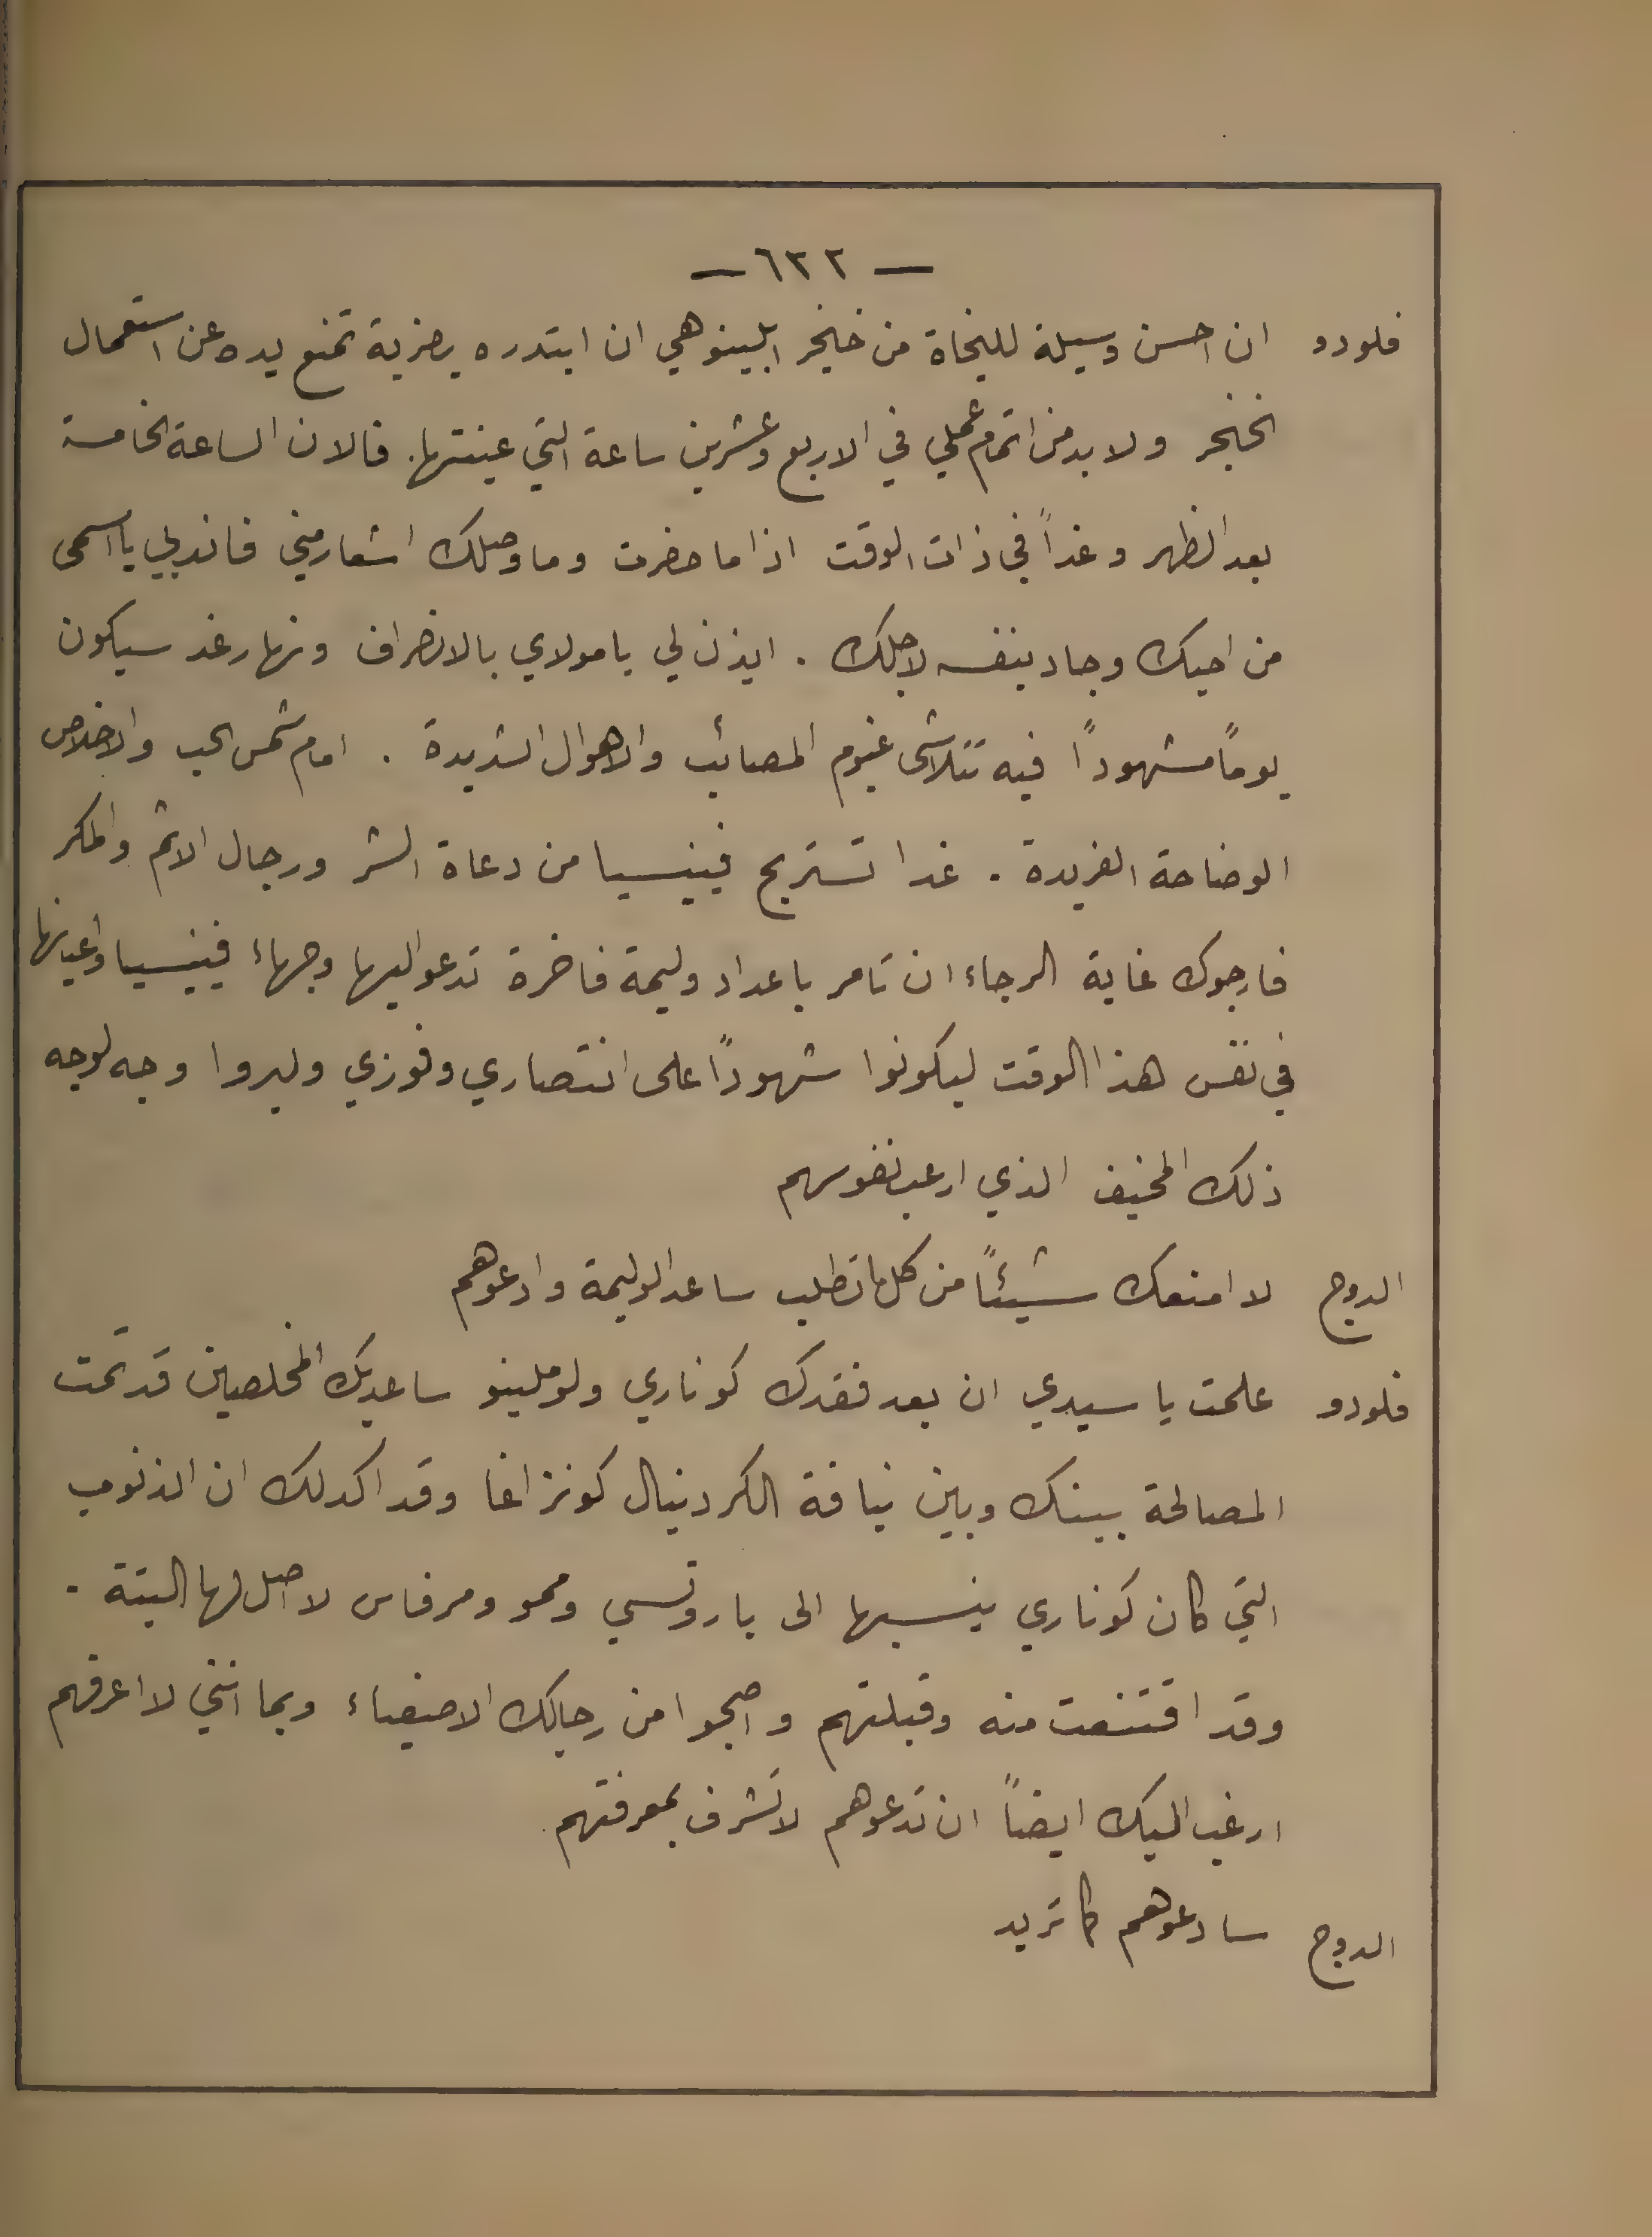 — ٦٢٢ —
فلودو ان احسن وسيلة للنجاة من خنجر ابلينو هي ان ابتدره بضربة تمنع يده عن استعمال
الخنجر ولا بد من اتمام عملي في الاربع وعشرين ساعة التي عينتها. فالان الساعة الخامسة
بعد الظهر وغداً في ذات الوقت اذا ما حضرت وما وصلك اشعار مني فاندبي يا اسمى
من احبك وجاد بنفسه لاجلك . ايذن لي يا مولاي بالانصراف ونهار غد سيكون
يوماً مشهوداً فيه تتلاشى غيوم المصائب والاهوال الشديدة . امام شمس الحب والاخلاص
الوضاحة الفريدة . غدا تستريح فينيسيا من دعاة الشر ورجال الاثم والمكر
فارجوك غاية الرجاء ان تامر باعداد وليمة فاخرة تدعو اليها وجهاء فينيسيا واعيانها
في نفس هذا الوقت ليكونوا شهوداً على انتصاري وفوزي وليروا وجه لوجه
ذلك المخيف الذي ارعب نفوسهم
الدوج لا امنعك شيئاً من كل ما تطلب ساعد الوليمة وادعوهم
فلودو علمت يا سيدي ان بعد فقدك كوناري ولوملينو ساعديك المخلصين قد تمت
المصالحة بينك وبين نيافة الكردينال كونزاغا وقد اكد لك ان الذنوب
التي كان كوناري ينسبها الى باروتسي وممو ومرفاس لا اصل لها البتة .
وقد اقتنعت منه وقبلتهم واصبحوا من رجالك الاصفياء وبما انني لا اعرفهم
ارغب اليك ايضاً ان تدعوهم لاتشرف بمعرفتهم.
الدوج سادعوهم كما تريد